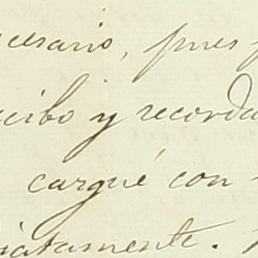 cesario, pues
cibo y recorda
cargué con
iatamente.